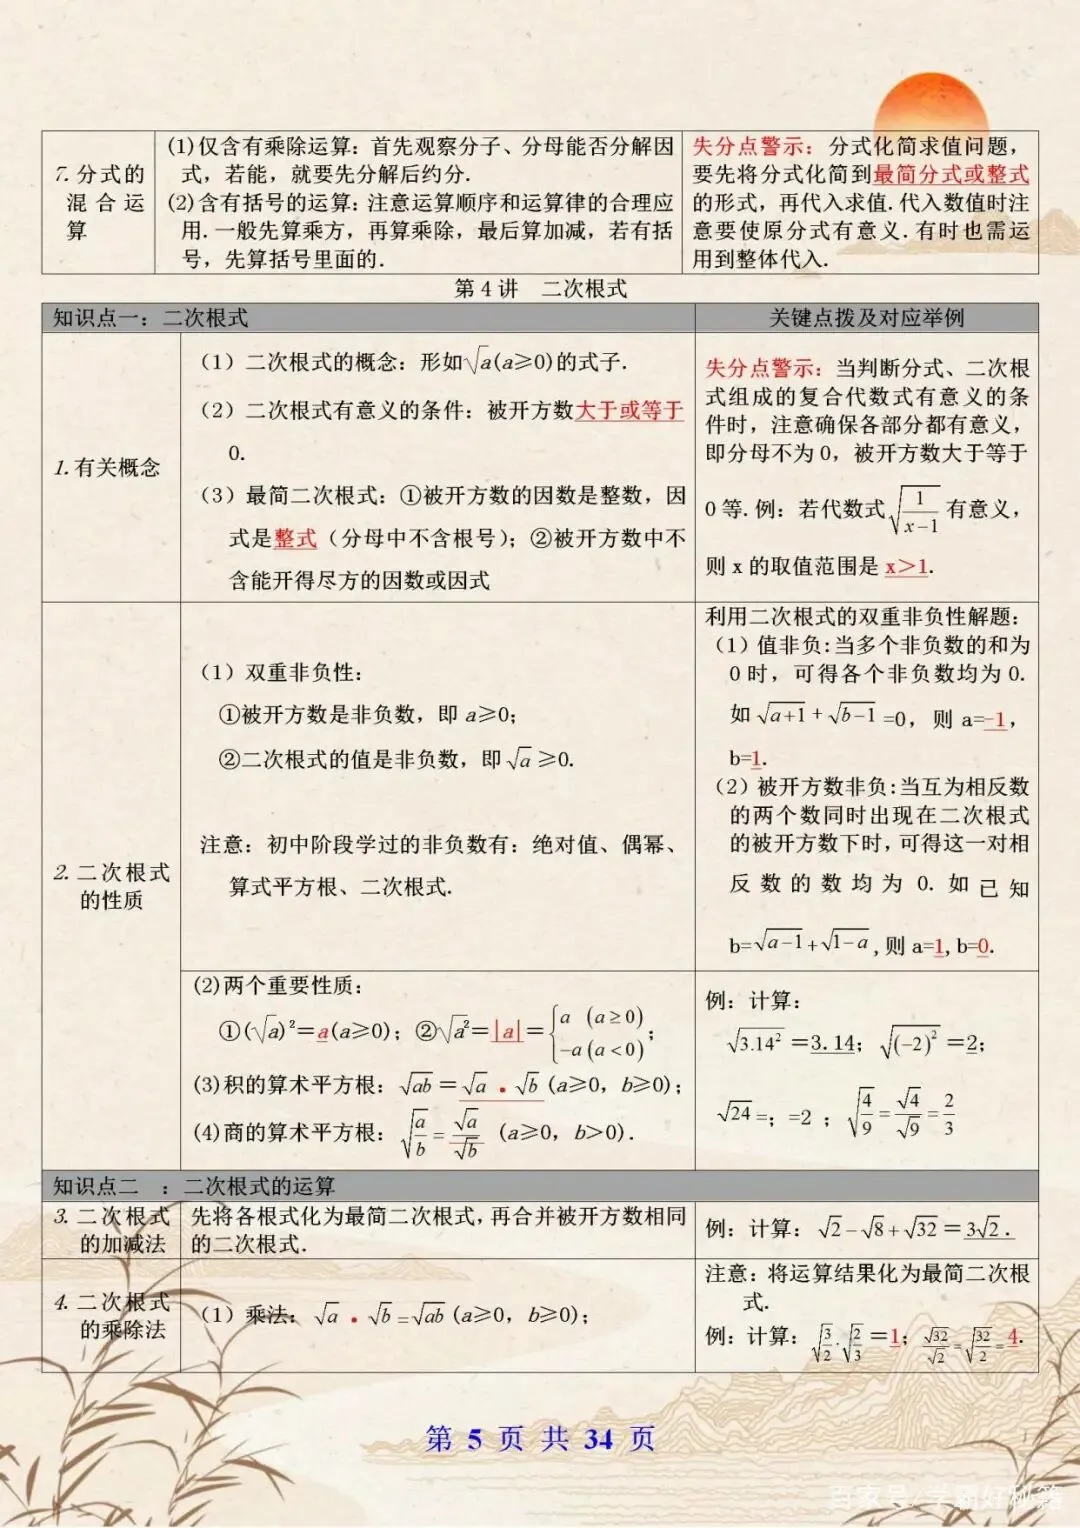 7.分式的混合运算
(1)仅含有乘除运算：首先观察分子、分母能否分解因
式，若能，就要先分解后约分.
(2)含有括号的运算：注意运算顺序和运算律的合理应
用.一般先算乘方，再算乘除，最后算加减，若有括
号，先算括号里面的.
失分点警示：分式化简求值问题，
要先将分式化简到最简分式或整式
的形式，再代入求值.代入数值时注
意要使原分式有意义.有时也需运
用到整体代入.
第4讲 二次根式
知识点一：二次根式
关键点拨及对应举例
1.有关概念
（1）二次根式的概念：形如√a(a≥0)的式子.
（2）二次根式有意义的条件：被开方数大于或等于
0.
（3）最简二次根式：①被开方数的因数是整数，因
式是整式（分母中不含根号）；②被开方数中不
含能开得尽方的因数或因式
失分点警示：当判断分式、二次根
式组成的复合代数式有意义的条
件时，注意确保各部分都有意义，
即分母不为0，被开方数大于等于
0等.例：若代数式√(1/(x−1))有意义，
则x的取值范围是x＞1.
2.二次根式
的性质
（1）双重非负性：
①被开方数是非负数，即a≥0；
②二次根式的值是非负数，即√a≥0.
注意：初中阶段学过的非负数有：绝对值、偶幂、
算式平方根、二次根式.
利用二次根式的双重非负性解题：
（1）值非负：当多个非负数的和为
0时，可得各个非负数均为0.
如√(a+1)+√(b−1)=0，则a=-1，
b=1.
（2）被开方数非负：当互为相反数
的两个数同时出现在二次根式
的被开方数下时，可得这一对相
反数的数均为0.如已知
b=√(a−1)+√(1−a),则a=1,b=0.
(2)两个重要性质：
①(√a)²=a(a≥0)；②√a²=|a|={a (a≥0) −a(a<0)；
(3)积的算术平方根：√ab=√a·√b(a≥0，b≥0)；
(4)商的算术平方根：√(a/b)=√a/√b (a≥0，b>0).
例：计算：
√3.14²=3.14；√(−2)²=2；
√24=；=2；√(4/9)=√4/√9=2/3
知识点二 ：二次根式的运算
3.二次根式
的加减法
先将各根式化为最简二次根式，再合并被开方数相同
的二次根式.
例：计算：√2−√8+√32=3√2.
4.二次根式
的乘除法
（1）乘法：√a·√b=√ab(a≥0，b≥0)；
注意：将运算结果化为最简二次根
式.
例：计算：√(3/2)·√(2/3)=1；√32/√2=√(32/2)=4.
第 5 页 共 34 页
百家号/学霸好秘籍